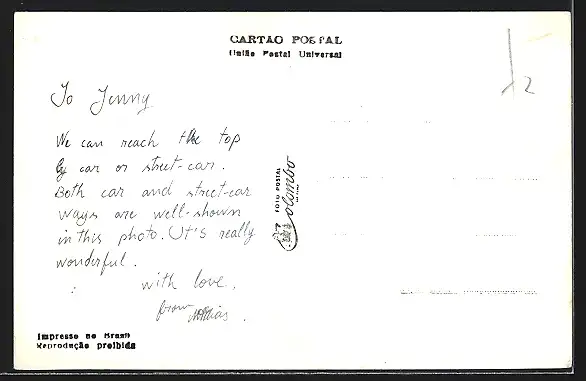 CARTÃO POSTAL
União Postal Universal
To Jenny
We can reach the top
by car or street-car.
Both car and street-car
ways are well-shown
in this photo. It's really
wonderful.
with love,
from
FOTO POSTAL
Colombo
Impresso no Brasil
Reprodução proibida